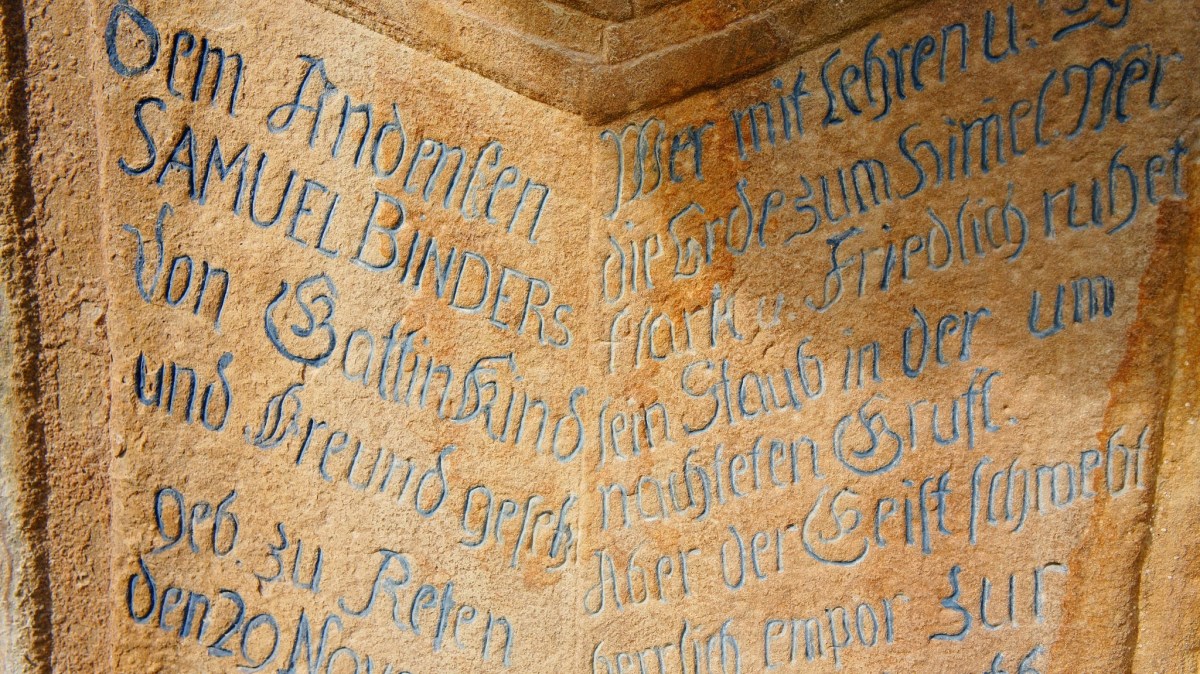 Dem Andenken
SAMUEL BINDERS
Von Gattin Kind
und Freund gesetz
geb. zu Reten
den 20 Nove
Wer mit Lehren u.
die Erde zum Himel. Wer
stark u. Friedlich ruhet
sein Staub in der um
nachteten Gruft.
Aber der Geist schwebt
herrlich empor zur